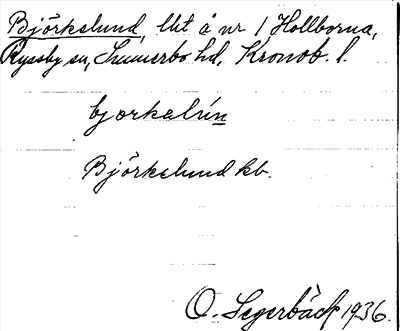 Björkelund, lht å nr 1 Hollborna,
Ryssby sn, Sunnerbo hd, Kronob. l.
bjorkelún
Björkelund kb.
O. Segerbäck 1936.